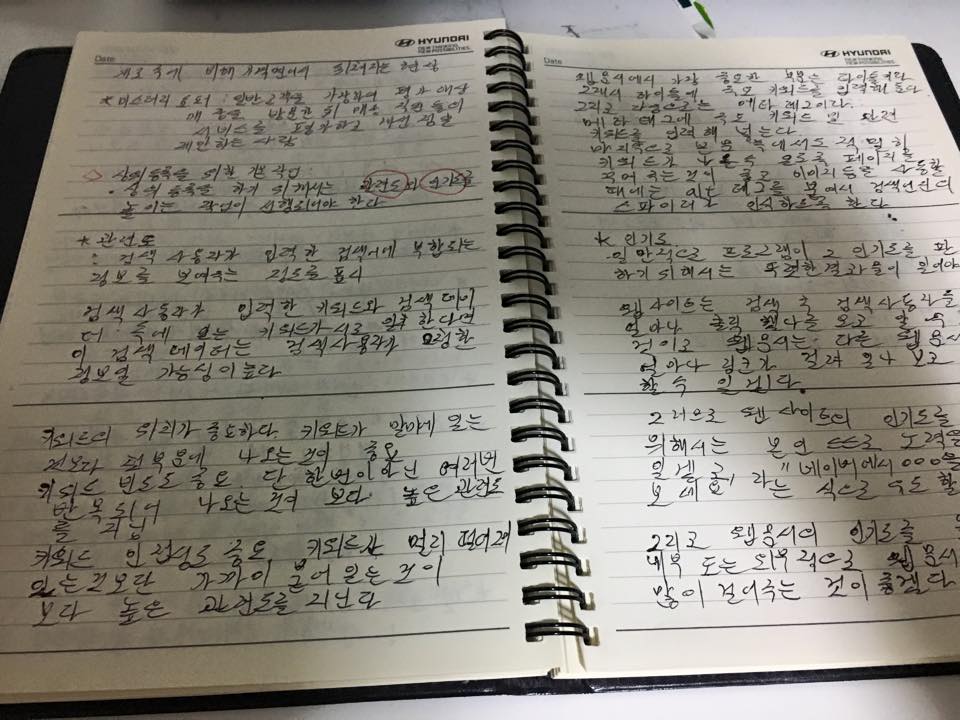 Date
HYUNDAI
NEW THINKING.
NEW POSSIBILITIES.
비해
현상
* 미스터리 요퍼 : 일반고객을 가장하여
매장을 방문한 뒤 매장 직원들의
서비스를 평가하고 개선점을
제안하는 사람
◇ 상위등록을 위한 작업
· 상위 등록을 하기 위해서는 관련도와 인기도를
높이는 작업이 선행되어야 한다
* 관련도
: 검색 사용자가 입력한 검색어에 부합되는
정보를 보여주는 정도를 표시
검색 사용자가 입력한 키워드와 검색 데이
터 속에 있는 키워드가 서로 일치한다면
이 검색 데이터는 검색사용자가
정보일 가능성이 높다
키워드의 위치가 중요하다. 키워드가 말미에 있는
것보다 첫부분에 나오는 것이 중요
키워드 빈도도 중요. 단 한번이 아닌 여러번
반복되어 나오는 것이 보다 높은 관련도
를 지님
키워드 인접성도 중요 키워드가 멀리 떨어져
있는것보단 가까이 붙어 있는 것이
보다 높은 관련도를 지닌다
Date
HYUNDAI
NEW THINKING.
NEW POSSIBILITIES.
웹문서에서 가장 중요한 부분은 타이틀이다
그래서 타이틀에 속도 키워드를 입력해 둔다
그리고 다음으로는 메타 태그이다.
메타 태그에 속도 키워드 및 관련
키워드를 입력해 넣는다
마지막으로 본문 속에서도 적당히
키워드가 나올수 있도록 페이지를
것이 좋고 이미지들을 사용할
때에는 alt 태그를 붙여서 검색엔진의
스파이더가 인식하도록 한다.
* 인기도
일반적으로 프로그램이 그 인기도를 판
하기 위해서는 투명한 결과물이 있어야
웹사이트는 검색 후 검색사용자들
얼마나 클릭 했나를 보고 알 수
것이고 웹문서는 다른 웹문서
얼마나 링크가 걸려 있나 보고
할수 있겠다.
그러므로 웹 사이트의 인기도를
위해서는 본인 스스로 노력을
일례로, "네이버에서 ○○○을
보세요" 라는 식으로 유도할
그리고 웹문서의 인기도를
내부 또는 외부적으로 웹문서
많이 걸어주는 것이 좋겠다